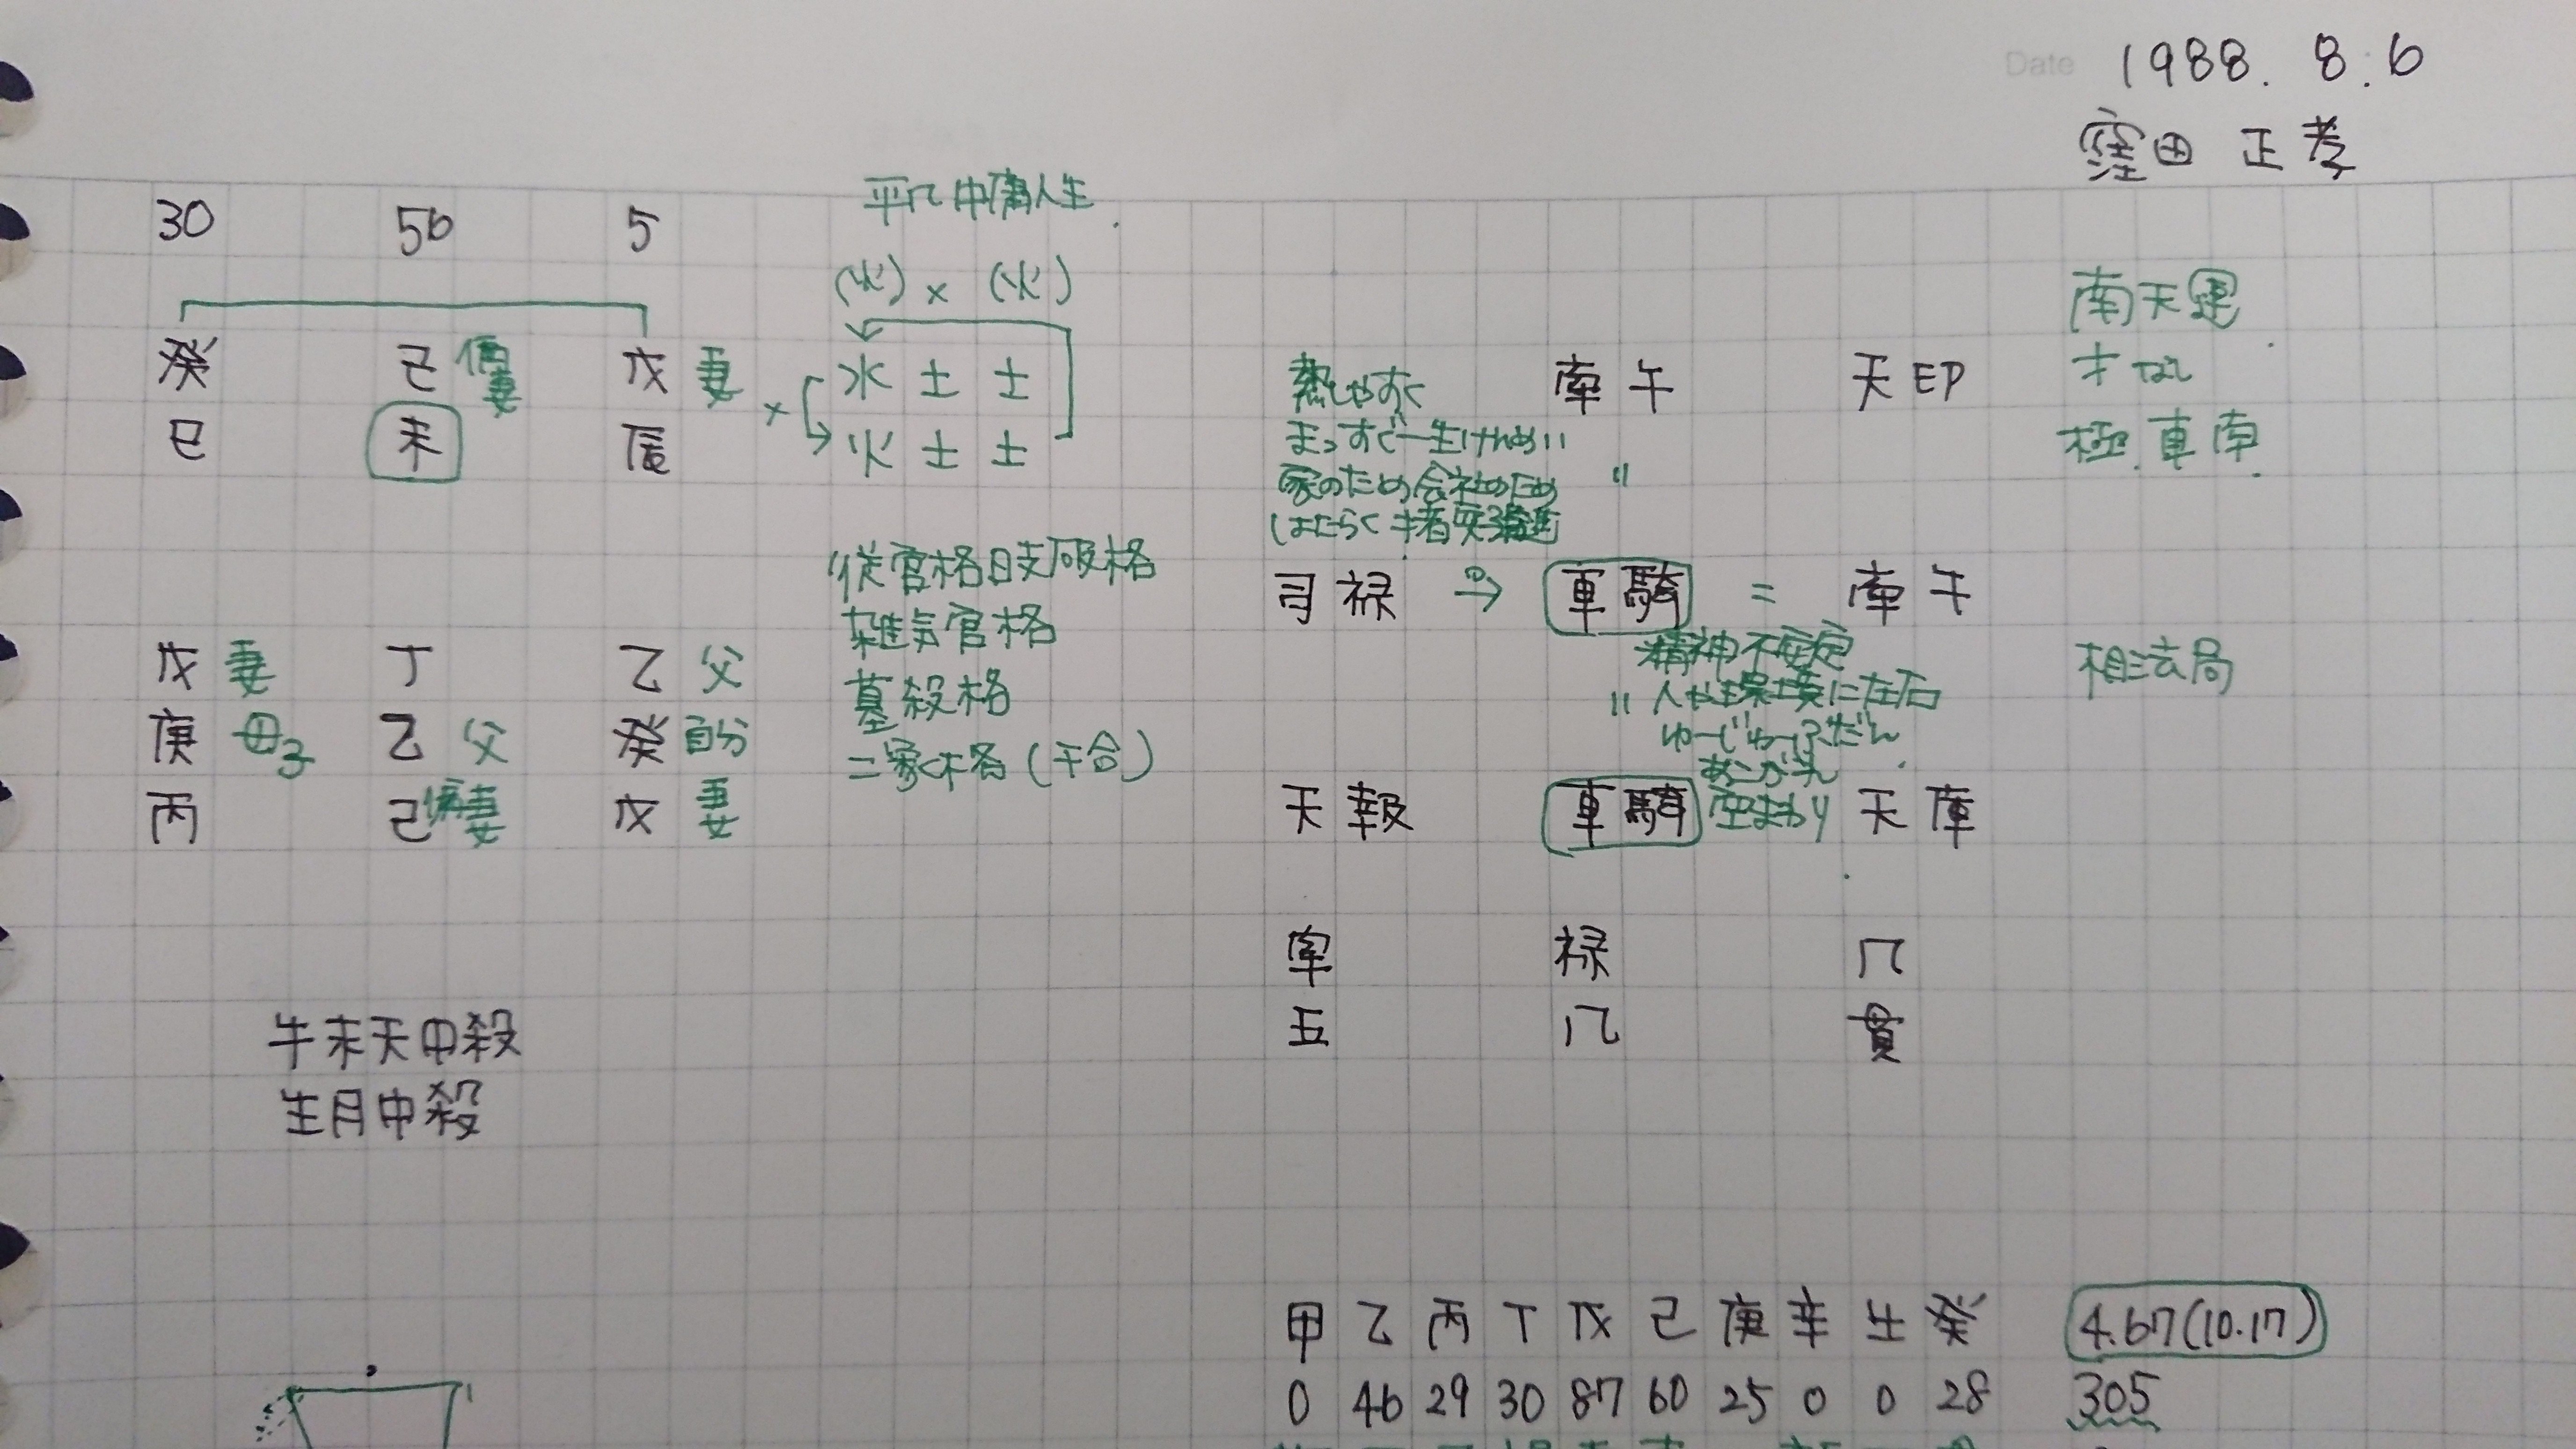 Date 1988. 8. 6
窪田 正孝
30 56 5
平凡中庸人生
(火) × (火)
癸 己 偏妻 戊 妻
巳 未 辰
× 水 土 土
火 土 土
熱しやすく
まっすぐ一生けんめい
家のため会社のため
はたらく
南午 天印
南天運
才なし
極 車南
従官格日支破格
雑気官格
墓殺格
二家格(干合)
司禄 → 車騎 = 南午
精神不安定
〃 人や環境に左右
ゆーじゅーふだん
あこがれ
空まわり
相法局
戊 妻 丁 乙 父
庚 母子 乙 父 癸 自分
丙 己 偏妻 戊 妻
天報 車騎 天庫
牢 禄 几
五 几 貫
午未天中殺
生月中殺
甲 乙 丙 丁 戊 己 庚 辛 壬 癸 4.67(10.17)
0 46 29 30 87 60 25 0 0 28 305